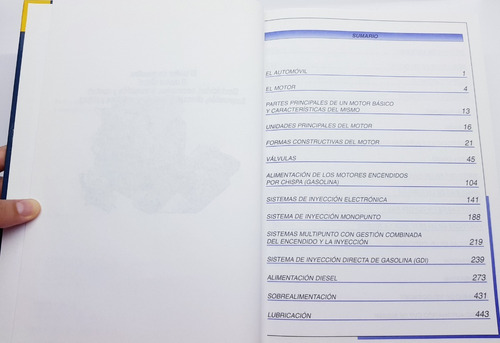 SUMARIO
EL AUTOMÓVIL 1
EL MOTOR 4
PARTES PRINCIPALES DE UN MOTOR BÁSICO
Y CARACTERÍSTICAS DEL MISMO 13
UNIDADES PRINCIPALES DEL MOTOR 16
FORMAS CONSTRUCTIVAS DEL MOTOR 21
VÁLVULAS 45
ALIMENTACIÓN DE LOS MOTORES ENCENDIDOS
POR CHISPA (GASOLINA) 104
SISTEMAS DE INYECCIÓN ELECTRÓNICA 141
SISTEMA DE INYECCIÓN MONOPUNTO 188
SISTEMAS MULTIPUNTO CON GESTIÓN COMBINADA
DEL ENCENDIDO Y LA INYECCIÓN 219
SISTEMA DE INYECCIÓN DIRECTA DE GASOLINA (GDI) 239
ALIMENTACIÓN DIESEL 273
SOBREALIMENTACIÓN 431
LUBRICACIÓN 443